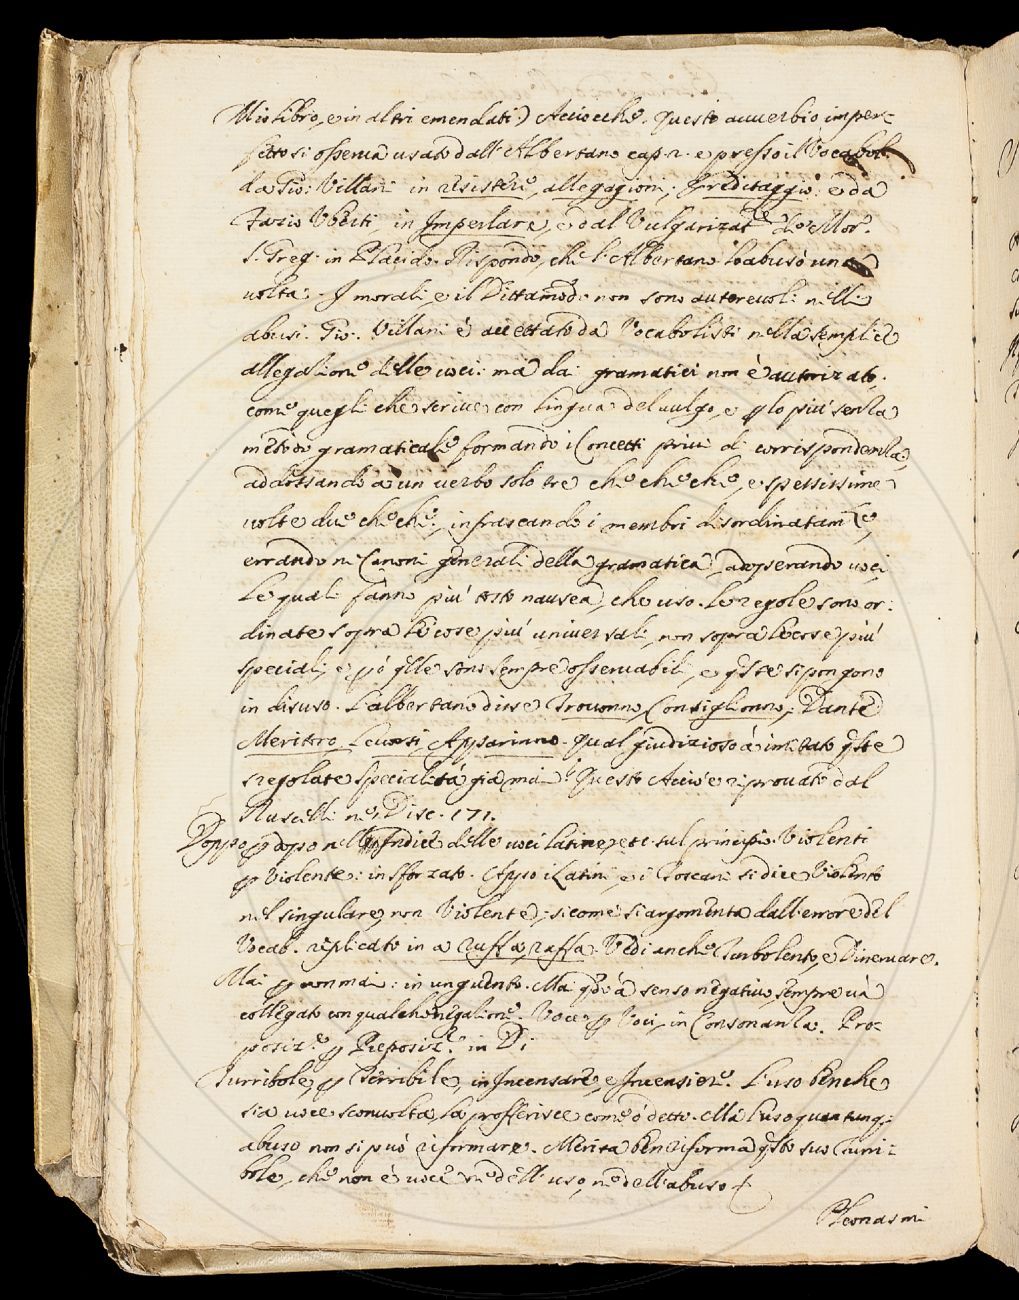 Mio libro, e in altri emendati) Acciocche. Questo auuerbio imper-
fetto si osserua usato dall'Albertano cap. 2. e presso il Vocabol.
da Gio: Villani in resistere, allegagioni, Ereditaggio: e da
Fazio Vberti, in Imperlare, e dal Vulgarizat.e Le Mor.
S. Greg. in Placido. Rispondo, che l'Albertano lo abusò una
volta. I morali, e il Dittamodo non sono autoreuoli nelli
abusi. Gio. Villani è accettato da Vocabolisti nella semplice
allegatione delle uoci: ma da gramatici non è autorizato,
come quegli che scriue con lingua del uulgo, e p lo più senza
metodo gramaticale formando i Concetti priui di corrispondenza,
addossando a un uerbo solo tre che che che, e spessissime
uolte due che che, infrascando i membri disordinatam.te,
errando ne Canoni generali della gramatica, adoperando uoci
le quali fanno più tosto nausea, che uso. Le regole sono or:
dinate sopra le cose più uniuersali, non sopra le cose più
speciali, e p ò q̃lle sono sempre osseruabili, e q̃ste si pongono
in disuso. L'albertano disse Trouonno, Consiglionno, Dante
Merittro, Leuorsi, Apparinno. Qual giudizioso à imitato q̃ste
sregolate specialità già mai? Questo Acciò è riprouato dal
Ruscelli ne' Disc. 171.
Doppo p dopo nell'Indice delle uoci latine, etc. sul principio. Violenti
p Violente: in sforzato. Appo i Latini, e i Toscani si dice Violento
nel singulare, non Violente, si come si argomenta dall'errore del
Vocab. replicato in a ruffa, raffa. Vedi anche Turbolento, e Dineruare.
Mai p non mai: in unguento. Ma q̃do à senso negatiuo, sempre uà
collegato con qualche negatione. Voce p Voci, in Consonanza. Pro-
posiz.e p Preposiz.e in Di
Turribole, p Terribile, in Incensare, e Incensiere. L'uso benche
sia uoce sconuolta, la profferisce come ò detto. Ma l'uso quantunq;
abuso non si può riformare. Merita ben riforma q̃sto suo Turri-
bole, che non è uoce ne dell'uso, ne dell'abuso
Pleonasmi